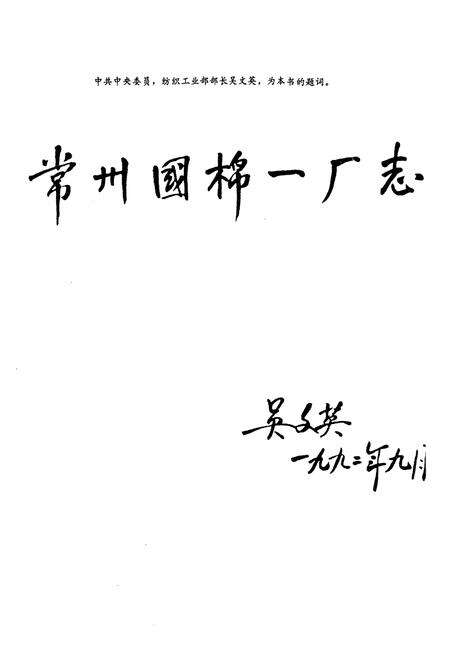 中共中央委员，纺织工业部部长吴文英，为本书的题词。
常州國棉一厂志
吴文英
一九九二年九月